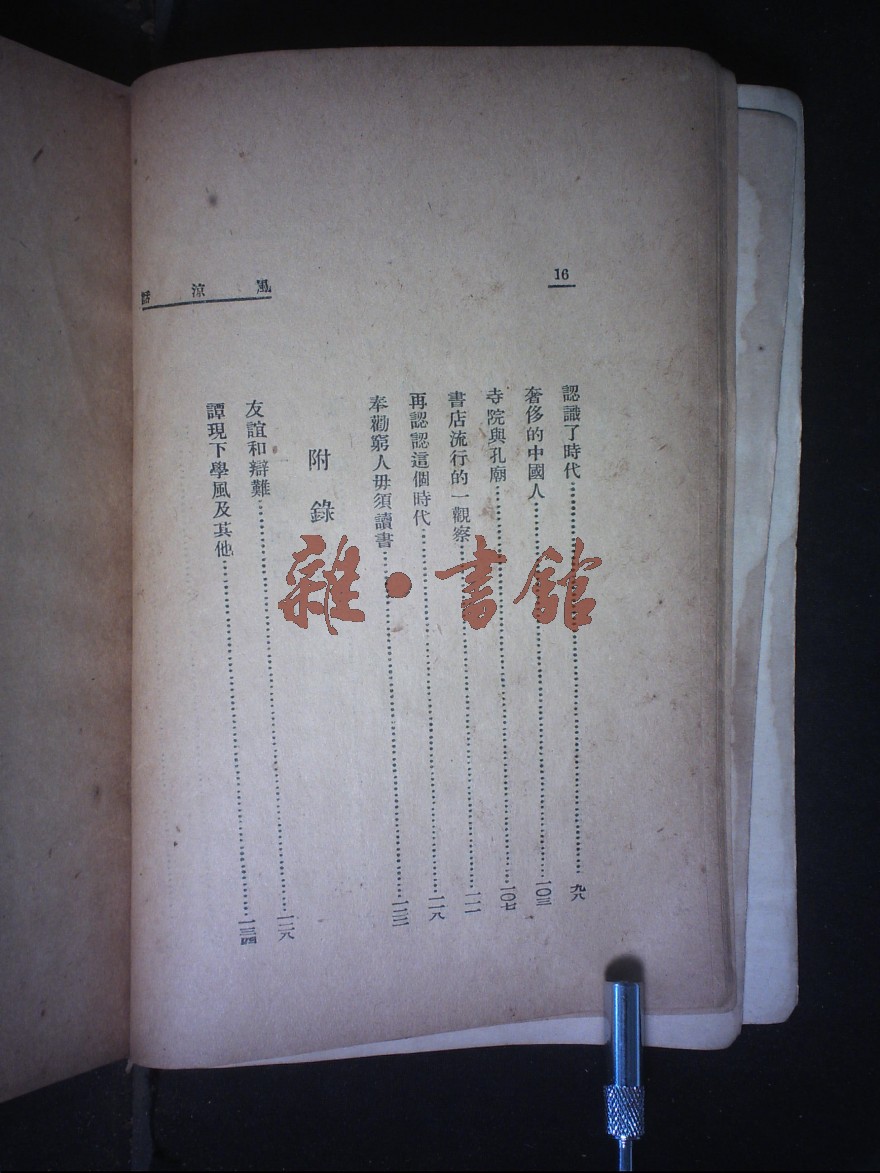 16
風涼話
認識了時代……九八
奢侈的中國人……一〇三
寺院與孔廟……一〇七
書店流行的一觀察……一一一
再認認這個時代……一一八
奉勸窮人毋須讀書……一二三
附錄
友誼和辯難……一二八
譚現下學風及其他……一三四
雜・書館